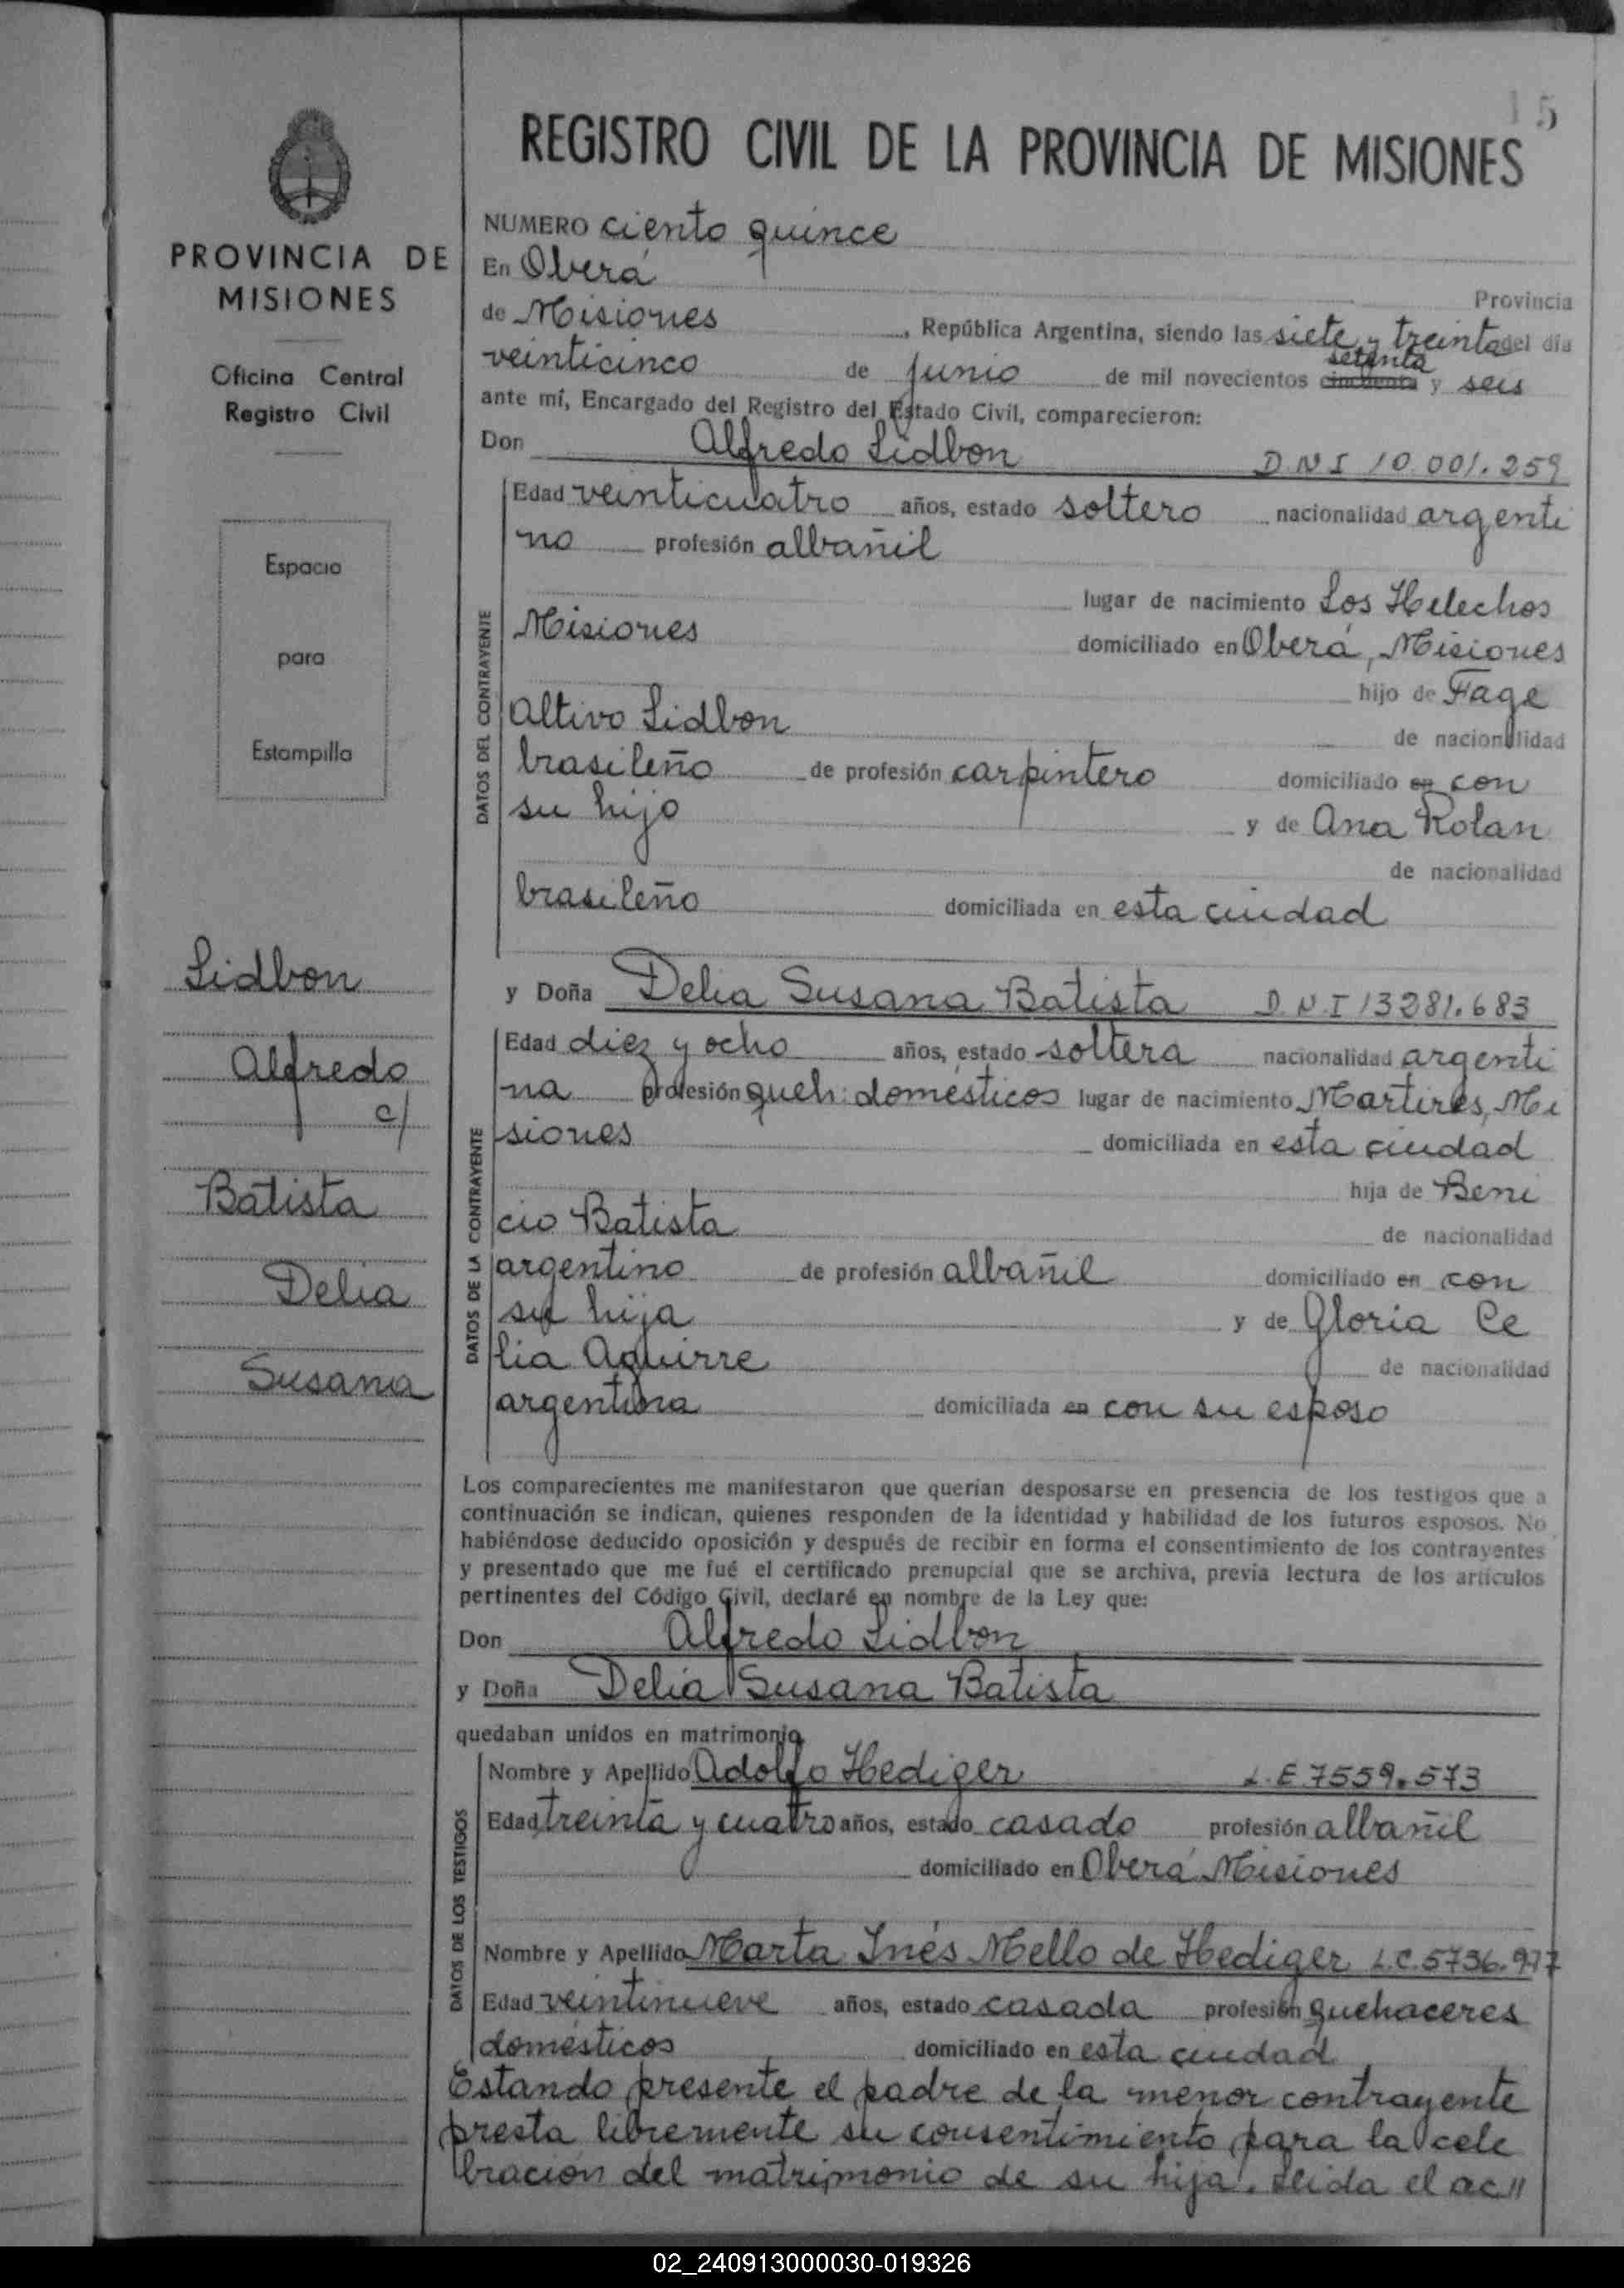 15
REGISTRO CIVIL DE LA PROVINCIA DE MISIONES
PROVINCIA DE
MISIONES
Oficina Central
Registro Civil
Espacio
para
Estampilla
Lidbon
Alfredo
c/
Batista
Delia
Susana
NUMERO ciento quince
En Oberá
Provincia
de Misiones, República Argentina, siendo las siete y treinta del día
setenta
veinticinco de junio de mil novecientos cincuenta y seis
ante mí, Encargado del Registro del Estado Civil, comparecieron:
Don Alfredo Lidbon D N I 10.001.259
DATOS DEL CONTRAYENTE
Edad veinticuatro años, estado soltero nacionalidad argenti
no profesión albañil
lugar de nacimiento Los Helechos
Misiones domiciliado en Oberá, Misiones
hijo de Fage
Altivo Lidbon
de nacionalidad
brasileño de profesión carpintero domiciliado en con
su hijo y de Ana Rolan
de nacionalidad
brasileño domiciliada en esta ciudad
y Doña Delia Susana Batista D.N.I 13281.683
DATOS DE LA CONTRAYENTE
Edad diez y ocho años, estado soltera nacionalidad argenti
na profesión queh: domésticos lugar de nacimiento Martires, Mi
siones domiciliada en esta ciudad
hija de Beni
cio Batista
de nacionalidad
argentino de profesión albañil domiciliado en con
su hija y de Gloria Ce
lia Aguirre
de nacionalidad
argentina domiciliada en con su esposo
Los comparecientes me manifestaron que querían desposarse en presencia de los testigos que a
continuación se indican, quienes responden de la identidad y habilidad de los futuros esposos. No
habiéndose deducido oposición y después de recibir en forma el consentimiento de los contrayentes
y presentado que me fué el certificado prenupcial que se archiva, previa lectura de los artículos
pertinentes del Código Civil, declaré en nombre de la Ley que:
Don Alfredo Lidbon
y Doña Delia Susana Batista
quedaban unidos en matrimonio
DATOS DE LOS TESTIGOS
Nombre y Apellido Adolfo Hediger L.E 7559.573
Edad treinta y cuatro años, estado casado profesión albañil
domiciliado en Oberá Misiones
Nombre y Apellido Marta Inés Mello de Hediger L.C.5736.977
Edad veintinueve años, estado casada profesión quehaceres
domésticos domiciliado en esta ciudad
Estando presente el padre de la menor contrayente
presta libremente su consentimiento para la cele
bración del matrimonio de su hija. Leida el ac//
02_240913000030-019326